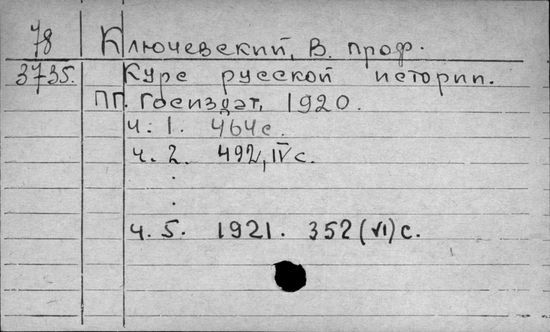 78 Ключевский, В. проф.
3735. Курс русской истории.
ПГ. Госиздат, 1920.
ч. 1. 464с.
ч. 2. 492, IV с.
.
.
ч. 5. 1921. 352 (VI) с.